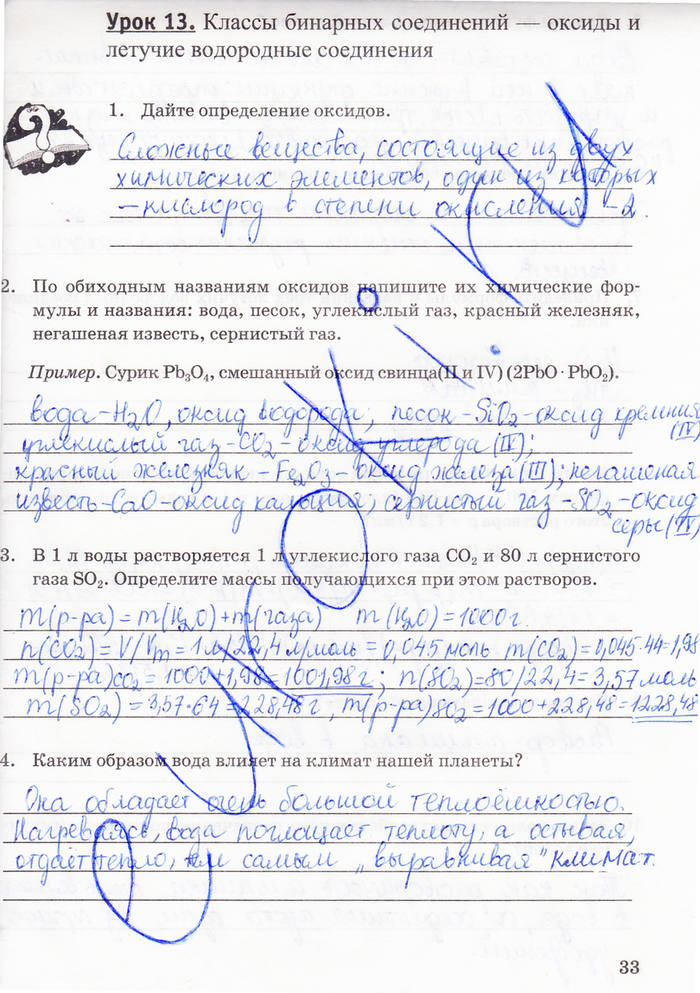 Урок 13. Классы бинарных соединений — оксиды и
летучие водородные соединения
1. Дайте определение оксидов.
Сложные вещества, состоящие из двух
химических элементов, один из которых
– кислород в степени окисления -2.
2. По обиходным названиям оксидов напишите их химические фор-
мулы и названия: вода, песок, углекислый газ, красный железняк,
негашеная известь, сернистый газ.
Пример. Сурик Pb₃O₄, смешанный оксид свинца(II и IV) (2PbO · PbO₂).
вода-H₂O, оксид водорода; песок-SiO₂-оксид кремния
(IV)
углекислый газ-CO₂-оксид углерода (IV);
красный железняк-Fe₂O₃-оксид железа (III); негашеная
известь-CaO-оксид кальция; сернистый газ-SO₂-оксид
серы (IV)
3. В 1 л воды растворяется 1 л углекислого газа CO₂ и 80 л сернистого
газа SO₂. Определите массы получающихся при этом растворов.
m(р-ра)=m(H₂O)+m(газа) m(H₂O)=1000г.
n(CO₂)=V/Vm=1л/22,4 л/моль=0,045 моль m(CO₂)=0,045·44=1,98
m(р-ра)CO₂=1000+1,98=1001,98г; n(SO₂)=80/22,4=3,57 моль
m(SO₂)=3,57·64=228,48г, m(р-ра)SO₂=1000+228,48=1228,48
4. Каким образом вода влияет на климат нашей планеты?
Она обладает очень большой теплоёмкостью.
Нагреваясь, вода поглощает теплоту, а остывая,
отдаёт тепло, тем самым „выравнивая" климат.
33